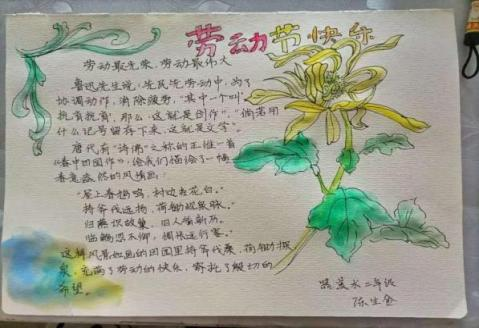 劳动节快乐
劳动最光荣,劳动最伟大
鲁迅先生说,先民先劳动中,为了
协调动作,消除疲劳,"其中一个叫
杭育杭育,那么,这就是创作","倘若用
什么记号留存下来,这就是文学"。
唐代有"诗佛"之称的王维一首
《春中田园作》,给我们描绘了一幅
春意盎然的风情画:
"屋上春鸠鸣,村边杏花白。
持斧伐远扬,荷锄觇泉脉。
归燕识故巢,旧人看新历。
临觞忽不御,惆怅远行客。"
这样风景如画的田园里持斧伐桑,荷锄探
泉,充满了劳动的快乐,寄托了殷切的
希望。
二年级
陈生